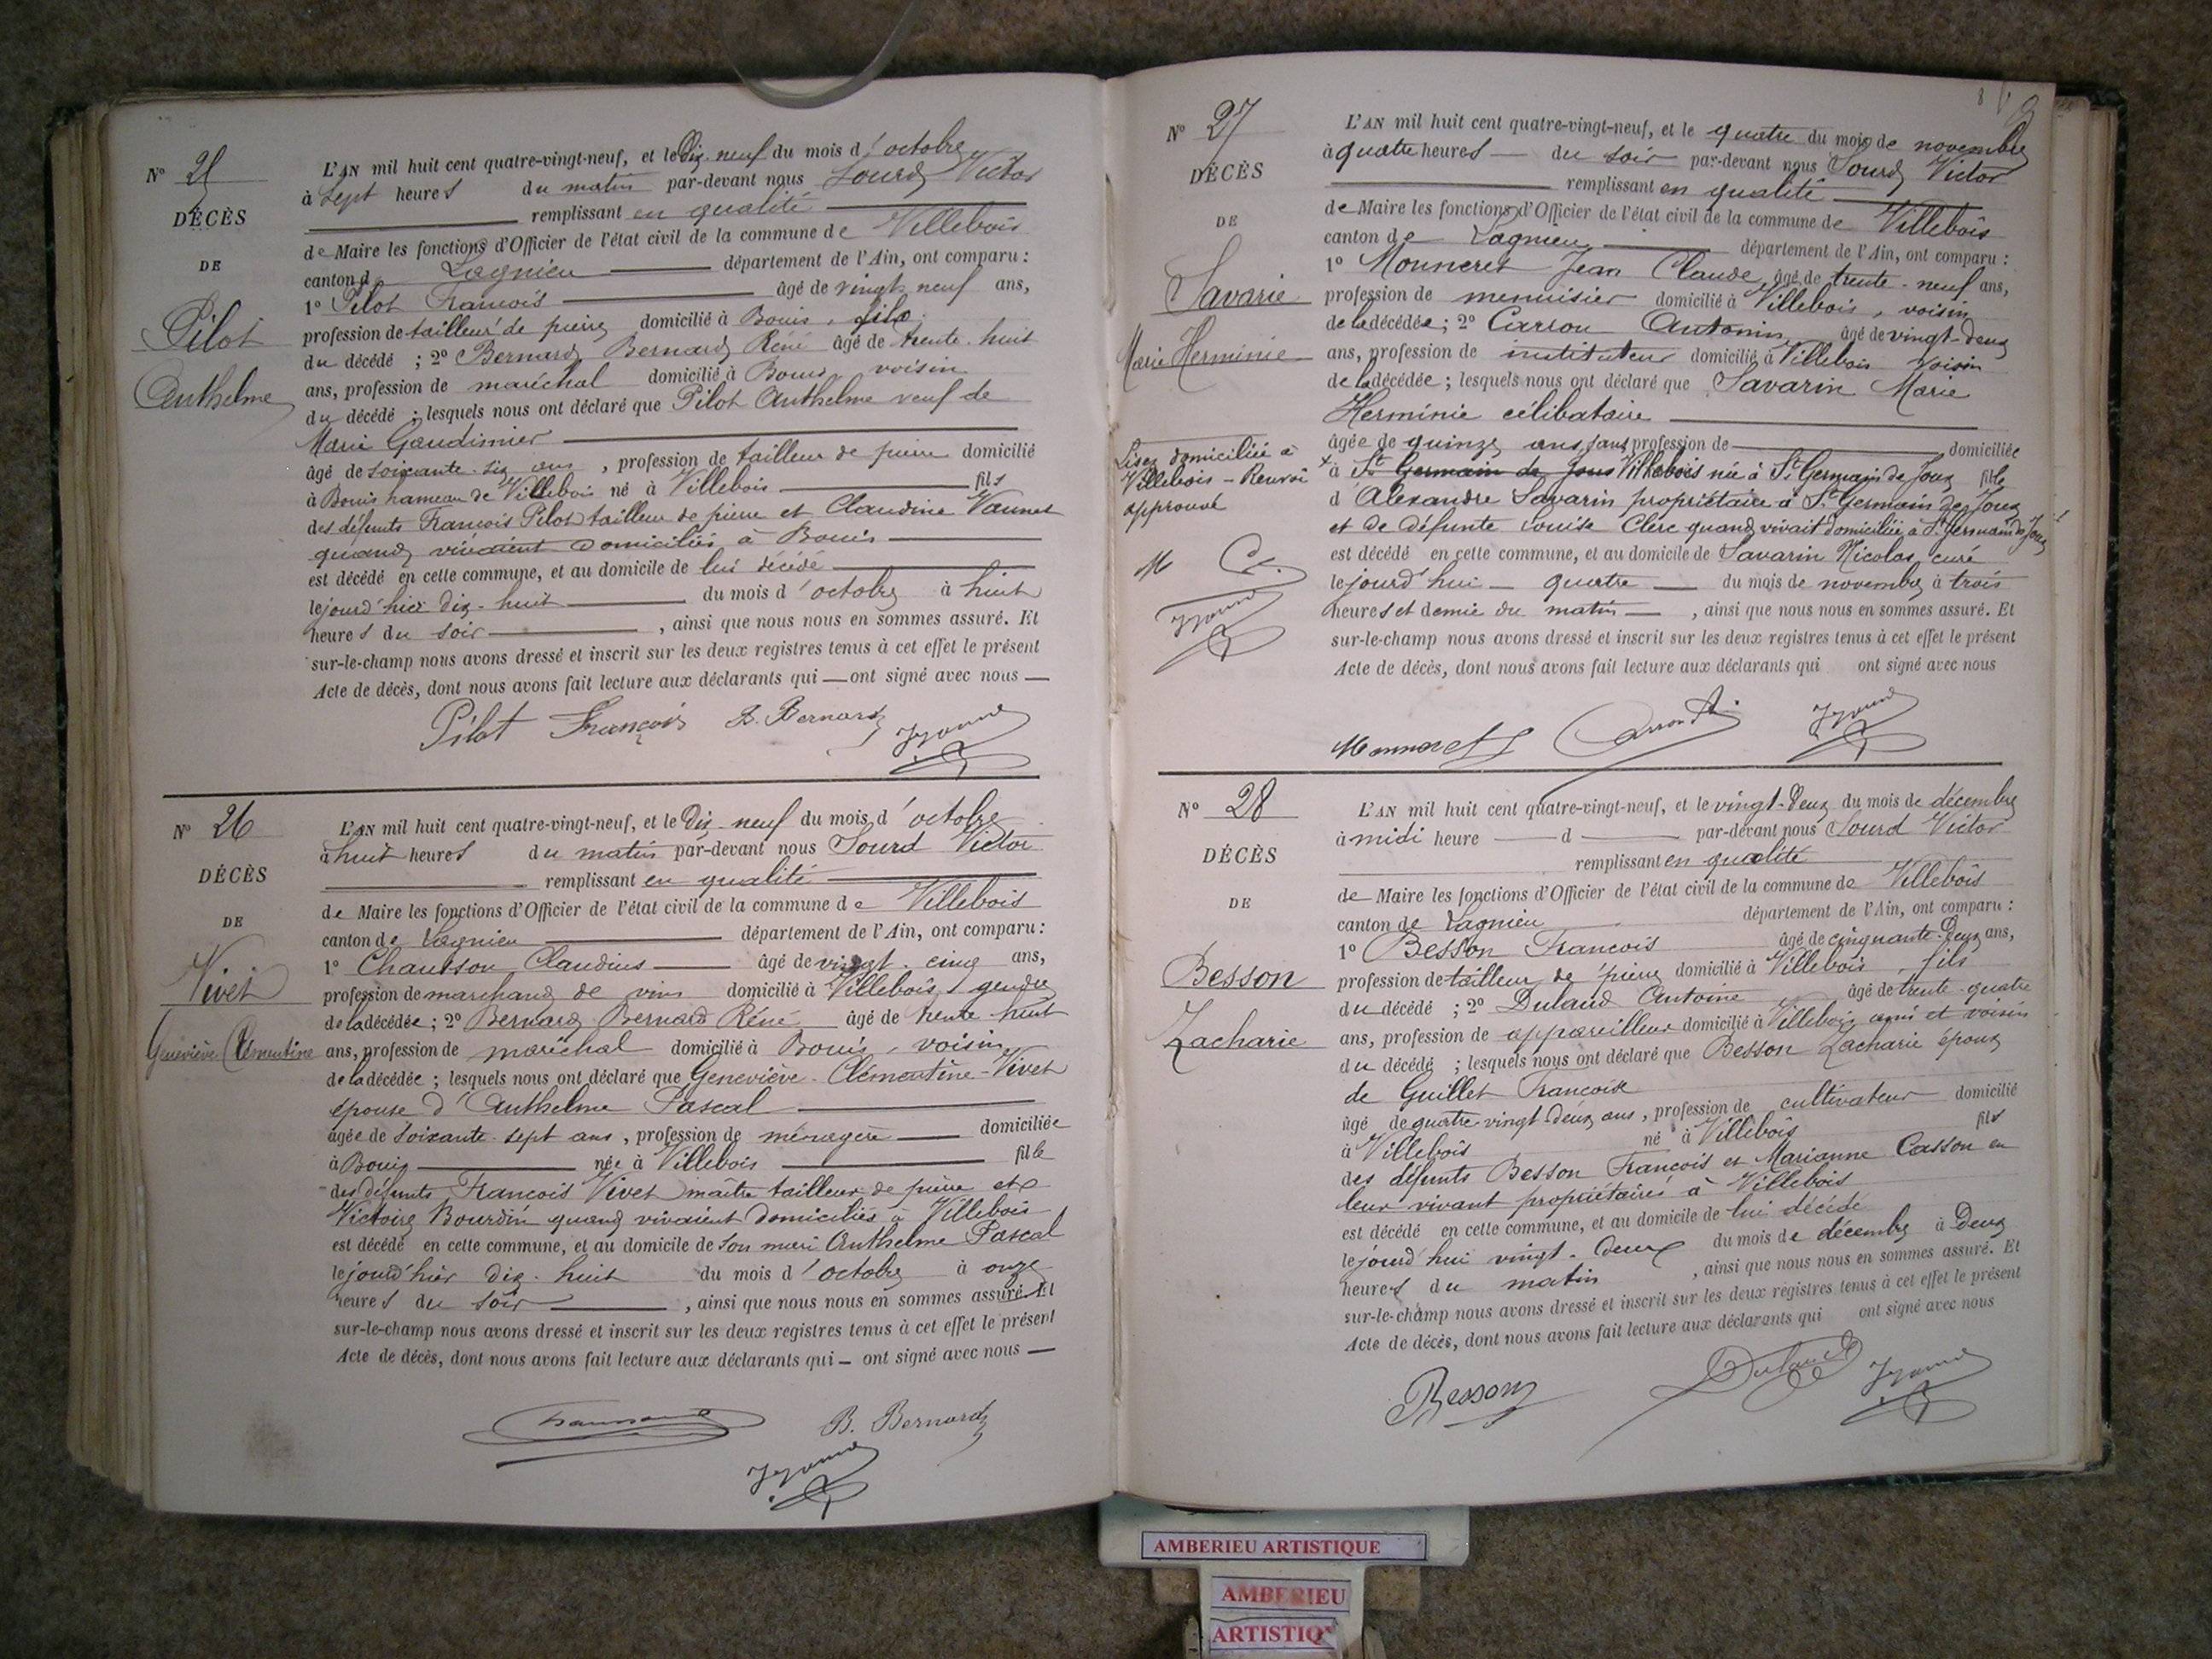 Nº 25
DÉCÈS
DE
Pilot
Anthelme
L'AN mil huit cent quatre-vingt-neuf, et le Dix-neuf du mois d'octobre
à Sept heures du matin par-devant nous Sourd Victor
remplissant en qualité
de Maire les fonctions d'Officier de l'état civil de la commune de Villebois
canton de Lagnieu département de l'Ain, ont comparu :
1º Pilot François âgé de vingt neuf ans,
profession de tailleur de pierre domicilié à Bouis, fils
du décédé ; 2º Bernard Bernard René âgé de trente-huit
ans, profession de maréchal domicilié à Bouis voisin
du décédé ; lesquels nous ont déclaré que Pilot Anthelme veuf de
Marie Gaudimier
âgé de soixante-six ans, profession de tailleur de pierre domicilié
à Bouis hameau de Villebois né à Villebois fils
des défunts François Pilot tailleur de pierre et Claudine Vannet
quand vivaient domiciliés à Bouis
est décédé en cette commune, et au domicile de lui décédé
le jourd'hier dix-huit du mois d'octobre à huit
heures du soir, ainsi que nous nous en sommes assuré. Et
sur-le-champ nous avons dressé et inscrit sur les deux registres tenus à cet effet le présent
Acte de décès, dont nous avons fait lecture aux déclarants qui ont signé avec nous
Pilot François B. Bernard
Nº 26
DÉCÈS
DE
Vivet
Geneviève Clémentine
L'AN mil huit cent quatre-vingt-neuf, et le Dix-neuf du mois d'octobre
à huit heures du matin par-devant nous Sourd Victor
remplissant en qualité
de Maire les fonctions d'Officier de l'état civil de la commune de Villebois
canton de Lagnieu département de l'Ain, ont comparu :
1º Chausson Claudius âgé de vingt-cinq ans,
profession de marchand de vin domicilié à Villebois, gendre
de la décédée ; 2º Bernard Bernard Réné âgé de trente huit
ans, profession de maréchal domicilié à Bouis, voisin
de la décédée ; lesquels nous ont déclaré que Geneviève-Clémentine-Vivet
épouse d'Anthelme Pascal
âgée de soixante-sept ans, profession de ménagère domiciliée
à Bouis née à Villebois fille
des défunts François Vivet maître tailleur de pierre et
Victoire Bourdin quand vivaient domiciliés à Villebois
est décédé en cette commune, et au domicile de son mari Anthelme Pascal
le jourd'hier dix-huit du mois d'octobre à onze
heures du soir, ainsi que nous nous en sommes assuré. Et
sur-le-champ nous avons dressé et inscrit sur les deux registres tenus à cet effet le présent
Acte de décès, dont nous avons fait lecture aux déclarants qui ont signé avec nous
B. Bernard
Nº 27
DÉCÈS
DE
Savarin
Marie Herminie
L'AN mil huit cent quatre-vingt-neuf, et le quatre du mois de novembre
à quatre heures du soir par-devant nous Sourd Victor
remplissant en qualité
de Maire les fonctions d'Officier de l'état civil de la commune de Villebois
canton de Lagnieu département de l'Ain, ont comparu :
1º Monneret Jean Claude, âgé de trente-neuf ans,
profession de menuisier domicilié à Villebois, voisin
de la décédée ; 2º Antonin âgé de vingt-deux
ans, profession de instituteur domicilié à Villebois voisin
de la décédée ; lesquels nous ont déclaré que Savarin Marie
Herminie célibataire
âgée de quinze ans, sans profession de domiciliée
x à St Germain de Joux Villebois née à St Germain de Joux fille
d'Alexandre Savarin propriétaire à St Germain de Joux
et de défunte Louise Clerc quand vivait domiciliée à St Germain de Joux
est décédé en cette commune, et au domicile de Savarin Nicolas, curé
le jourd'hui quatre du mois de novembre à trois
heures et demie du matin, ainsi que nous nous en sommes assuré. Et
sur-le-champ nous avons dressé et inscrit sur les deux registres tenus à cet effet le présent
Acte de décès, dont nous avons fait lecture aux déclarants qui ont signé avec nous
Lisez domiciliée à
Villebois - Renvoi
approuvé
Monneret
Nº 28
DÉCÈS
DE
Besson
Zacharie
L'AN mil huit cent quatre-vingt-neuf, et le vingt-deux du mois de décembre
à midi heure d par-devant nous Sourd Victor
remplissant en qualité
de Maire les fonctions d'Officier de l'état civil de la commune de Villebois
canton de Lagnieu département de l'Ain, ont comparu :
1º Besson François âgé de cinquante-deux ans,
profession de tailleur de pierre domicilié à Villebois, fils
du décédé ; 2º Dulaud Antoine âgé de trente-quatre
ans, profession de appareilleur domicilié à Villebois ami et voisin
du décédé ; lesquels nous ont déclaré que Besson Zacharie époux
de Guillet Françoise
âgé de quatre vingt-deux ans, profession de cultivateur domicilié
à Villebois né à Villebois fils
des défunts Besson François et Marianne Casson en
leur vivant propriétaires à Villebois
est décédé en cette commune, et au domicile de lui décédé
le jourd'hui vingt-deux du mois de décembre à Deux
heures du matin, ainsi que nous nous en sommes assuré. Et
sur-le-champ nous avons dressé et inscrit sur les deux registres tenus à cet effet le présent
Acte de décès, dont nous avons fait lecture aux déclarants qui ont signé avec nous
Besson Dulaud
AMBERIEU ARTISTIQUE
AMBERIEU
ARTISTIQ